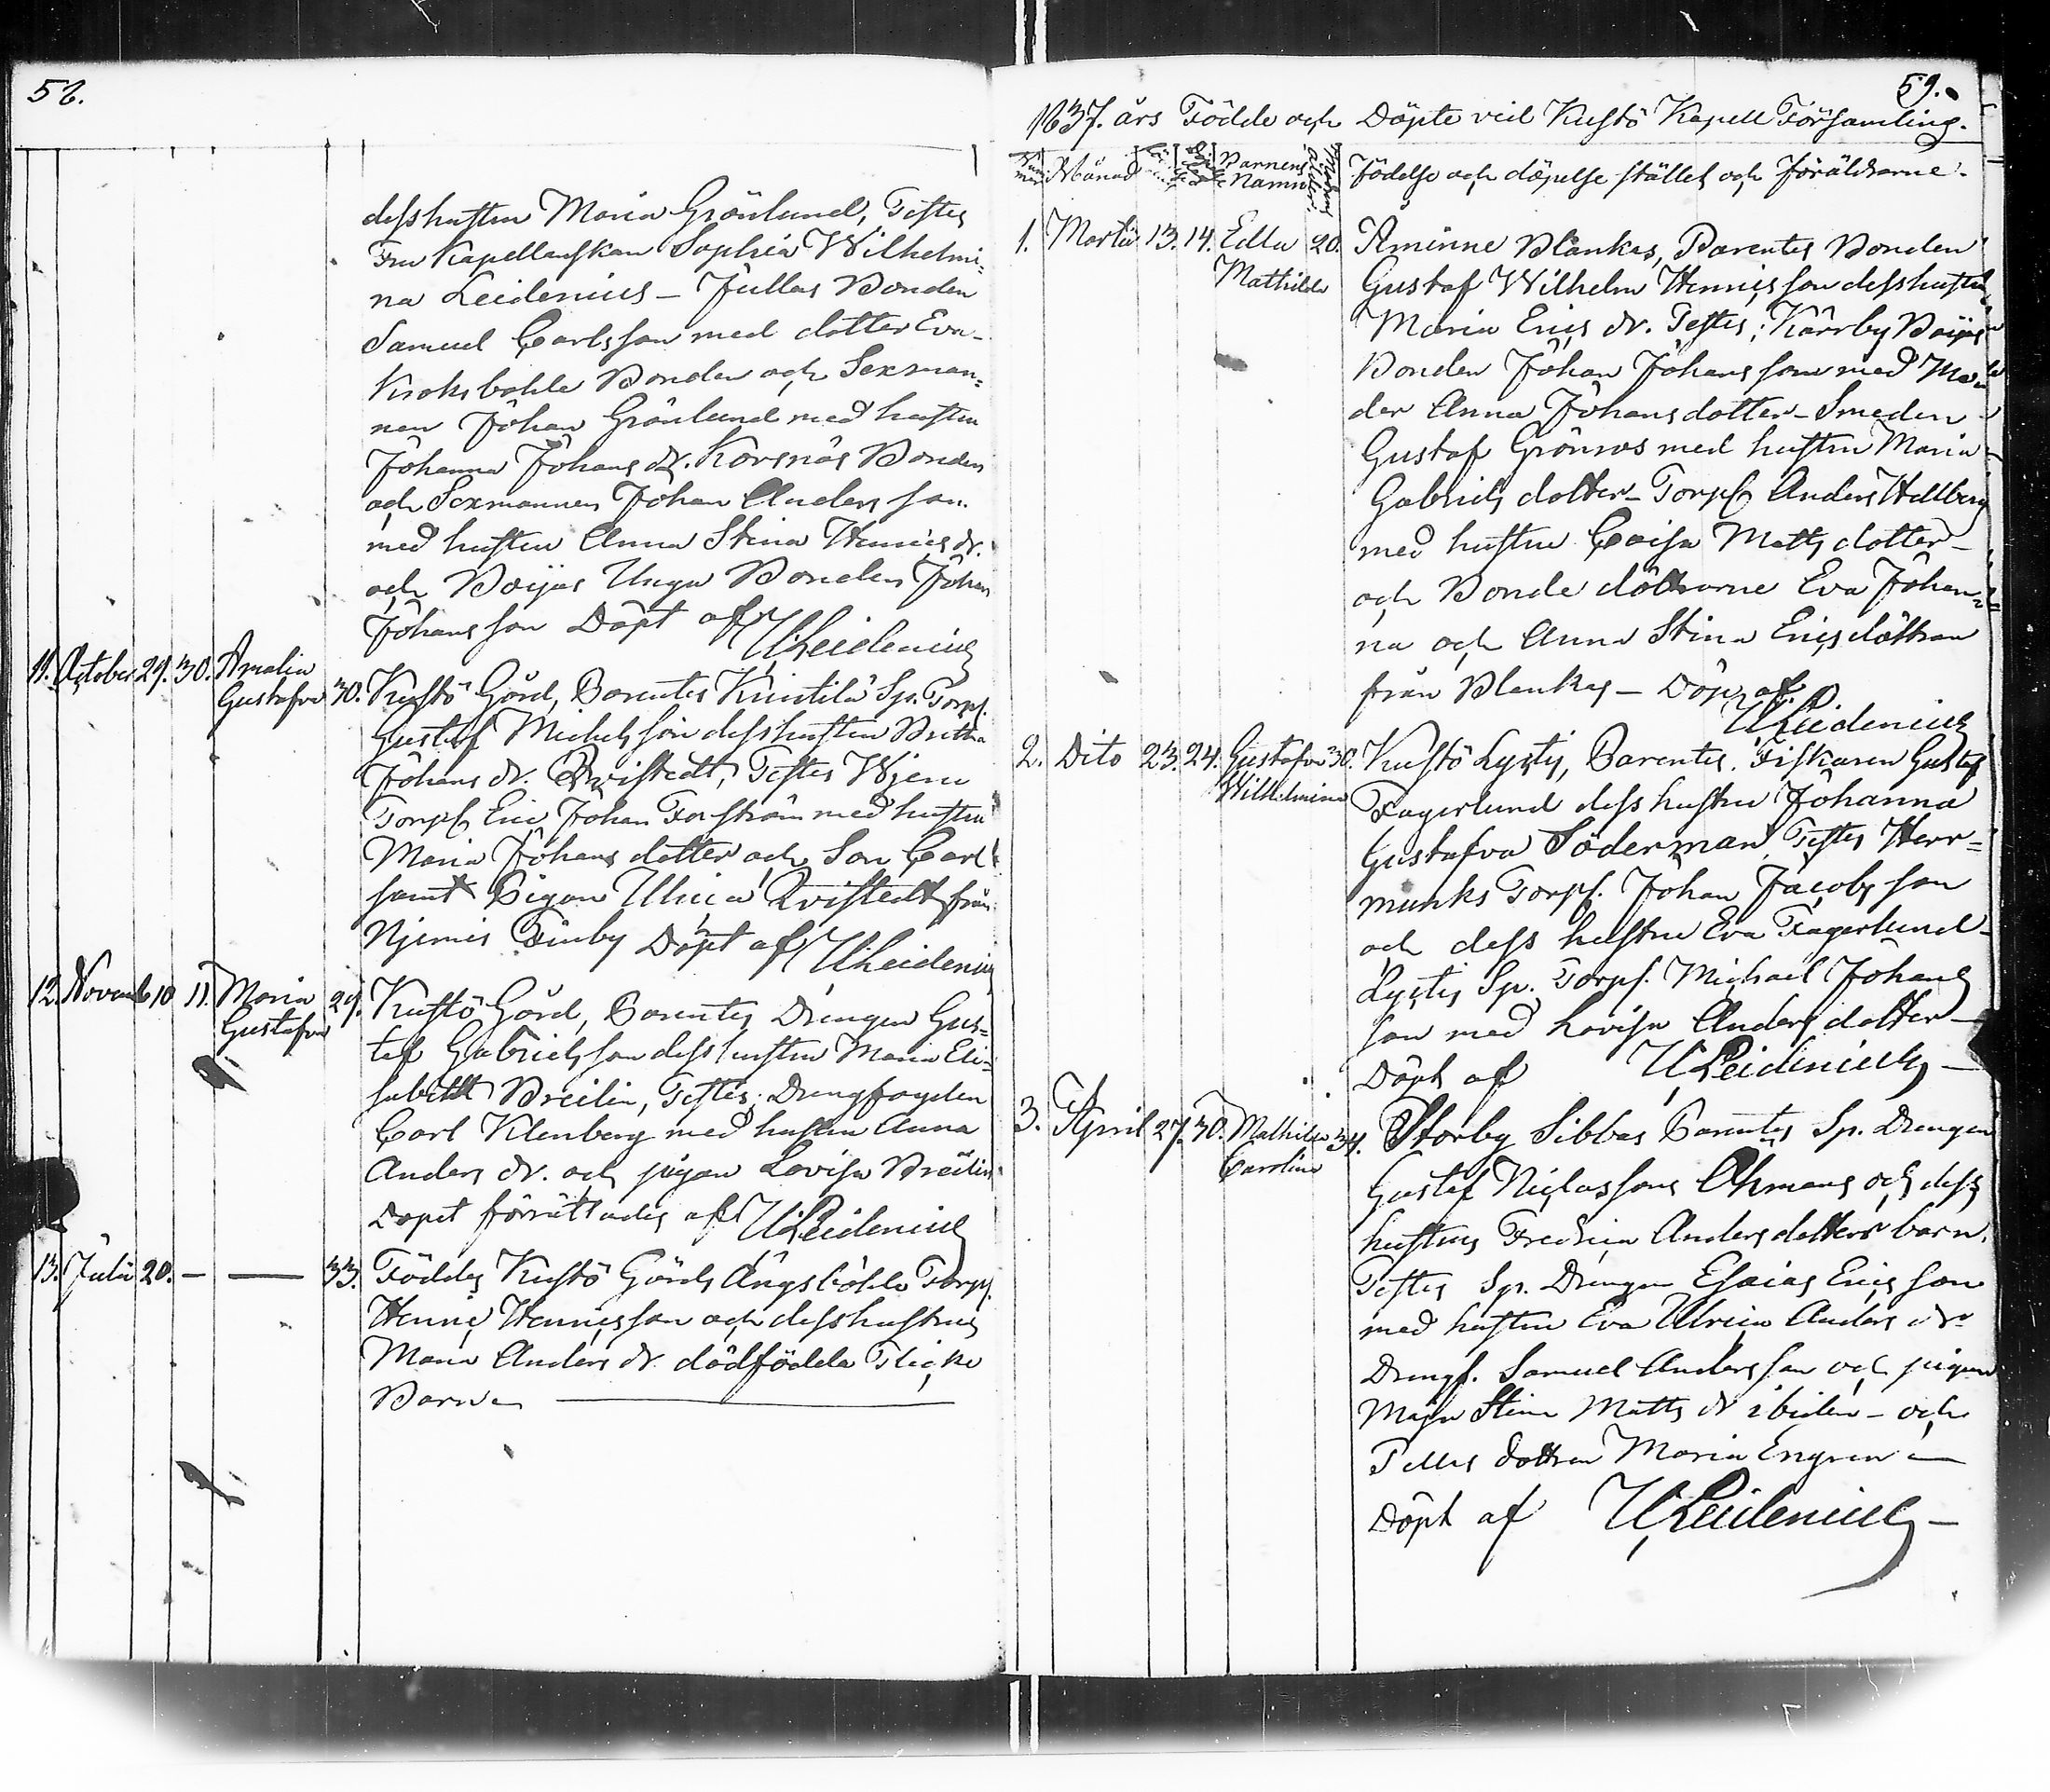 58.
desshustru Maria Grönlund, Testes
Fru Kapellanskan Sophia Wilhelmi=
na Leidenius – Jullas Bonden
Samuel Carlsson med dotter Eva –
Kroksbohle Bonden och Sexman=
nen Johan Grönlund med hustru
Johanna Johans dr. Korsnäs Bonden
och Sexmannen Johan Andersson
med hustru Anna Stina Henrics dr.
och Böijas Unga Bonden Johan
Johansson Döpt af U Leidenius
11. October 29. 30. Amalia
Gustafva 30. Kustö Gård, Parentes Sp. Torp.
Gustaf Michelsson desshustru Britha
Johans dr. Qvistedt, Testes
Torp. Eric Johan Forsström med hustru
Maria Johans dotter och Son Carl
samt Pigan Ulrica Qvistedt från
Döpt af U Leidenius
12. Novemb 10 11. Maria 29. Kustö Gård, Parentes Drengen Gus=
Gustafva taf Gabrielsson desshustru Maria Eli=
sabeth Breilin, Testes: Drengfogden
Carl Klenberg med hustru Anna
Anders dr. och pigan Lovisa Breilin
Dopet förrättades af U Leidenius
13. Julii 20. — — 33. Föddes Kustö Gårds Ängsböhle Torp.
Henric Henricsson och desshustrus
Maria Anders dr. dödfödda Flicke
Barn
59.
1837. års Födde och Döpte vid Kustö Kapell Församling.
Månad Barnens Namn Födelse och döpelse stället och föräldrarne.
1. Martii 13. 14. Edla 20. Åminne Blankas, Parentes Bonden
Mathilda Gustaf Wilhelm Henricsson desshustru
Maria Erics dr. Testes: Kärrby Böijas
Bonden Johan Johansson med Mo
der Anna Johansdotter – Smeden
Gustaf Grönroos med hustru Maria
Gabriels dotter – Torp. Anders Hellberg
med hustru Caisa Matts dotter –
och Bonde döttrarne Eva Johan=
na och Anna Stina Ericsdöttrar
från Blankas – Döpt af
U Leidenius
2. Dito 23. 24. Gustafva 30. Kustö Lystis, Parentes. Fiskaren Gustaf
Wilhelmina Fagerlund desshustru Johanna
Gustafva Söderman Testes Herr=
munks Torp. Johan Jacobsson
och dess hustru Eva Fagerlund –
Lystis Sp. Torp. Michael Johans
son med Lovisa Andersdotter –
Döpt af U Leidenius –
3. April 27. 30. Mathilda 34. Storby Sibbas Parentes Sp. Drengen
Carolina Gustaf Niclassons Öhmans och dess
hustrus Fredrica Andersdotters barn.
Testes Sp. Drengen Esaias Ericsson
med hustru Eva Ulrica Anders dr
Drengf. Samuel Andersson och pigan
Maja Stina Matts dr ibidem – och
dottren Maria Engren –
Döpt af U Leidenius –